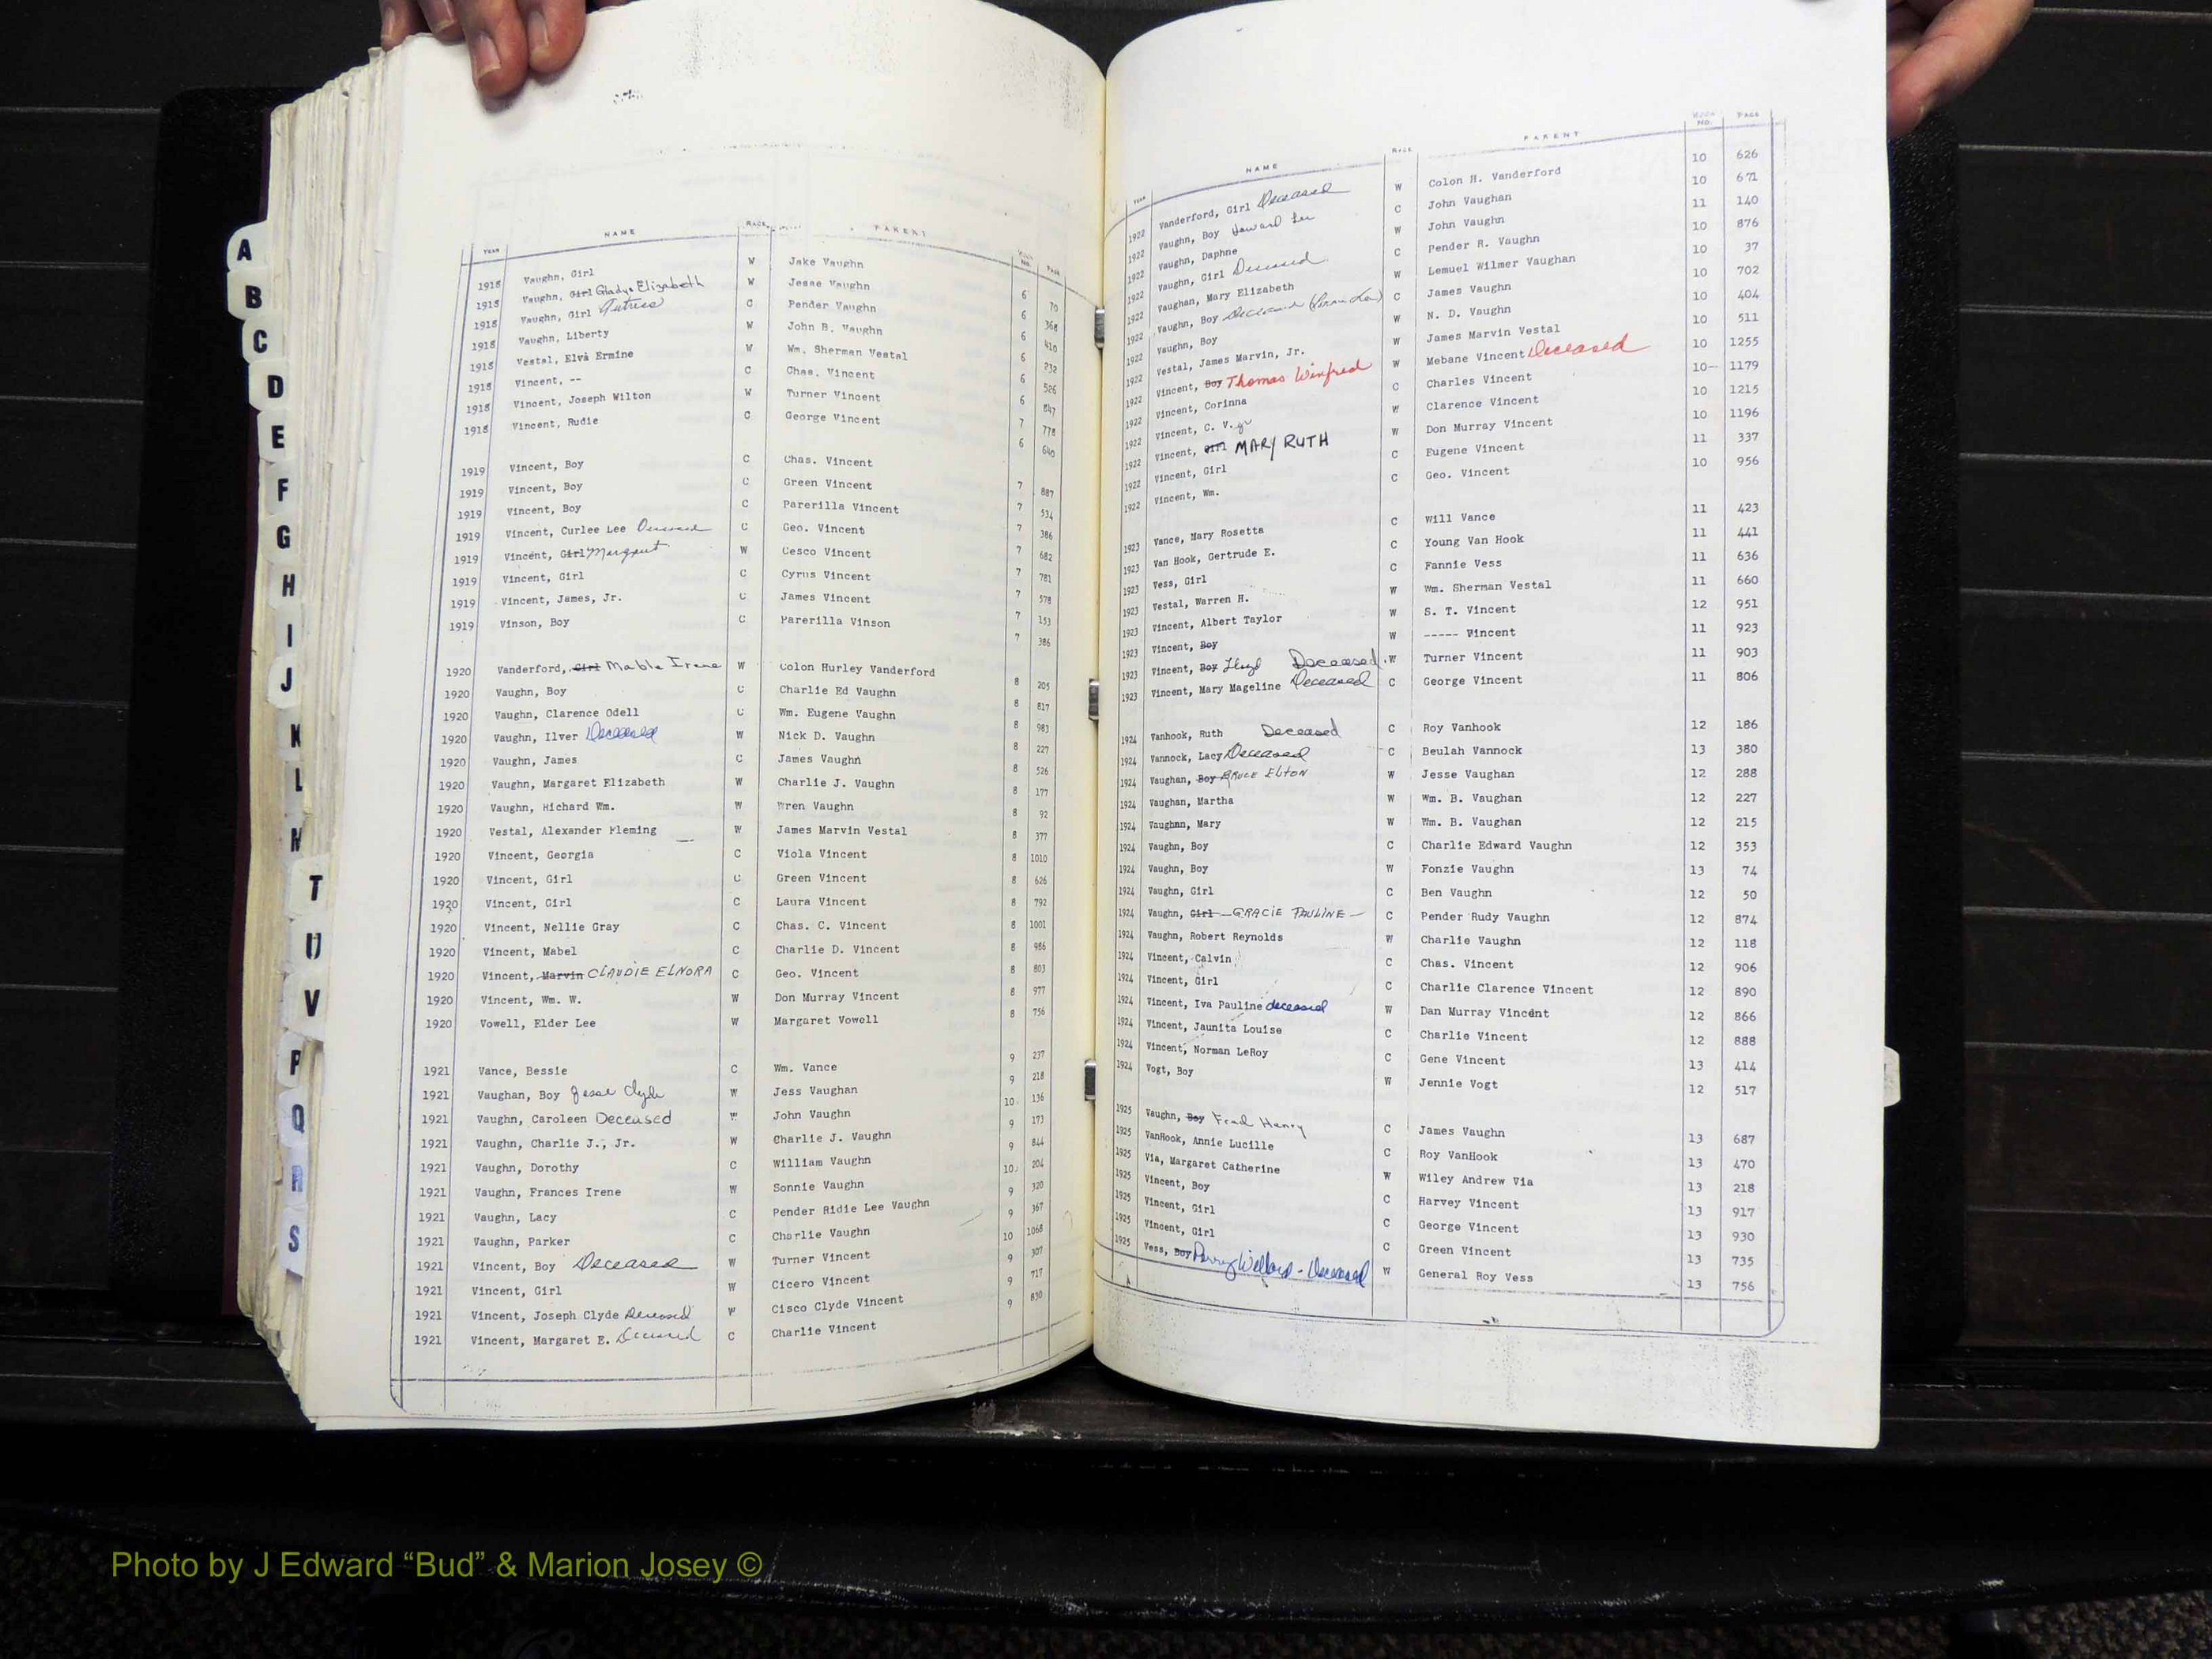 A
B
C
D
E
F
G
H
I
J
K
L
T
U
V
P
Q
R
S
YEAR NAME RACE PARENT NO. PAGE
1918 Vaughn, Girl W Jake Vaughn 6 70
1918 Vaughn, Girl Gladys Elizabeth W Jesse Vaughn 6 368
1918 Vaughn, Girl C Pender Vaughn 6 410
1918 Vaughn, Liberty W John B. Vaughn 6 232
1918 Vestal, Elva Ermine W Wm. Sherman Vestal 6 526
1918 Vincent, -- C Chas. Vincent 6 847
1918 Vincent, Joseph Wilton W Turner Vincent 7 778
1918 Vincent, Rudie C George Vincent 6 640
1919 Vincent, Boy C Chas. Vincent 7 887
1919 Vincent, Boy C Green Vincent 7 534
1919 Vincent, Boy C Parerilla Vincent 7 386
1919 Vincent, Curlee Lee Deceased C Geo. Vincent 7 682
1919 Vincent, Girl Margaret W Cesco Vincent 7 781
1919 Vincent, Girl C Cyrus Vincent 7 578
1919 Vincent, James, Jr. C James Vincent 7 153
1919 Vinson, Boy C Parerilla Vinson 7 386
1920 Vanderford, Girl Mable Irene W Colon Hurley Vanderford 8 205
1920 Vaughn, Boy C Charlie Ed Vaughn 8 817
1920 Vaughn, Clarence Odell C Wm. Eugene Vaughn 8 983
1920 Vaughn, Ilver Deceased W Nick D. Vaughn 8 227
1920 Vaughn, James C James Vaughn 8 526
1920 Vaughn, Margaret Elizabeth W Charlie J. Vaughn 8 177
1920 Vaughn, Richard Wm. W Wren Vaughn 8 92
1920 Vestal, Alexander Fleming W James Marvin Vestal 8 377
1920 Vincent, Georgia C Viola Vincent 8 1010
1920 Vincent, Girl C Green Vincent 8 626
1920 Vincent, Girl C Laura Vincent 8 792
1920 Vincent, Nellie Gray C Chas. C. Vincent 8 1001
1920 Vincent, Mabel C Charlie D. Vincent 8 986
1920 Vincent, Marvin CLAUDIE ELNORA C Geo. Vincent 8 803
1920 Vincent, Wm. W. W Don Murray Vincent 8 977
1920 Vowell, Elder Lee W Margaret Vowell 8 756
1921 Vance, Bessie C Wm. Vance 9 237
1921 Vaughan, Boy Jesse Clyde W Jess Vaughan 9 218
1921 Vaughn, Caroleen Deceased W John Vaughn 10 136
1921 Vaughn, Charlie J., Jr. W Charlie J. Vaughn 9 173
1921 Vaughn, Dorothy C William Vaughn 9 844
1921 Vaughn, Frances Irene W Sonnie Vaughn 10 204
1921 Vaughn, Lacy C Pender Ridie Lee Vaughn 9 320
1921 Vaughn, Parker C Charlie Vaughn 9 367
1921 Vincent, Boy Deceased W Turner Vincent 10 1068
1921 Vincent, Girl W Cicero Vincent 9 307
1921 Vincent, Joseph Clyde Deceased W Cisco Clyde Vincent 9 717
1921 Vincent, Margaret E. Deceased C Charlie Vincent 9 830
YEAR NAME RACE PARENT BOOK NO. PAGE
1922 Vanderford, Girl Deceased W Colon H. Vanderford 10 626
1922 Vaughn, Boy Howard Lee C John Vaughan 10 671
1922 Vaughn, Daphne W John Vaughn 11 140
1922 Vaughn, Girl Deceased C Pender R. Vaughn 10 876
1922 Vaughan, Mary Elizabeth W Lemuel Wilmer Vaughan 10 37
1922 Vaughn, Boy Deceased C James Vaughn 10 702
1922 Vaughn, Boy W N. D. Vaughn 10 404
1922 Vestal, James Marvin, Jr. W James Marvin Vestal 10 511
1922 Vincent, Boy Thomas Winfred W Mebane Vincent Deceased 10 1255
1922 Vincent, Corinna C Charles Vincent 10-- 1179
1922 Vincent, C. V. Jr W Clarence Vincent 10 1215
1922 Vincent, Girl MARY RUTH W Don Murray Vincent 10 1196
1922 Vincent, Girl C Eugene Vincent 11 337
1922 Vincent, Wm. C Geo. Vincent 10 956
1923 Vance, Mary Rosetta C Will Vance 11 423
1923 Van Hook, Gertrude E. C Young Van Hook 11 441
1923 Vess, Girl C Fannie Vess 11 636
1923 Vestal, Warren H. W Wm. Sherman Vestal 11 660
1923 Vincent, Albert Taylor W S. T. Vincent 12 951
1923 Vincent, Boy W ----- Vincent 11 923
1923 Vincent, Boy Lloyd Deceased W Turner Vincent 11 903
1923 Vincent, Mary Mageline Deceased C George Vincent 11 806
1924 Vanhook, Ruth Deceased C Roy Vanhook 12 186
1924 Vannock, Lacy Deceased C Beulah Vannock 13 380
1924 Vaughan, Boy BRUCE ELTON W Jesse Vaughan 12 288
1924 Vaughan, Martha W Wm. B. Vaughan 12 227
1924 Vaughan, Mary W Wm. B. Vaughan 12 215
1924 Vaughn, Boy C Charlie Edward Vaughn 12 353
1924 Vaughn, Boy W Fonzie Vaughn 13 74
1924 Vaughn, Girl C Ben Vaughn 12 50
1924 Vaughn, Girl GRACIE PAULINE C Pender Rudy Vaughn 12 874
1924 Vaughn, Robert Reynolds W Charlie Vaughn 12 118
1924 Vincent, Calvin C Chas. Vincent 12 906
1924 Vincent, Girl C Charlie Clarence Vincent 12 890
1924 Vincent, Iva Pauline deceased W Dan Murray Vincent 12 866
1924 Vincent, Jaunita Louise C Charlie Vincent 12 888
1924 Vincent, Norman LeRoy C Gene Vincent 13 414
1924 Vogt, Boy W Jennie Vogt 12 517
1925 Vaughn, Boy Fred Henry C James Vaughn 13 687
1925 VanHook, Annie Lucille C Roy VanHook 13 470
1925 Via, Margaret Catherine W Wiley Andrew Via 13 218
1925 Vincent, Boy C Harvey Vincent 13 917
1925 Vincent, Girl C George Vincent 13 930
1925 Vincent, Girl C Green Vincent 13 735
1925 Vess, Boy - Deceased W General Roy Vess 13 756
Photo by J Edward “Bud” & Marion Josey ©